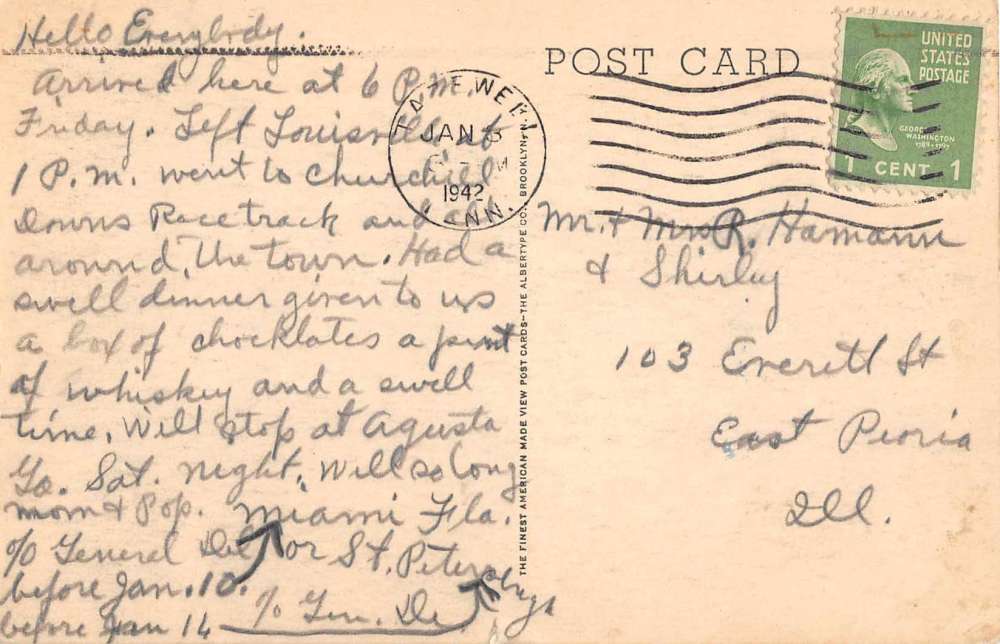 Hello Everybody.
Arrived here at 6 P.M.
Friday. Left Louisville at
1 P.m. went to Churchill
Downs Race track and all
around, the town. Had a
swell dinner given to us
a box of chocklates a point
of whiskey and a swell
time. Will stop at Agusta
Ga. Sat. night. Well so long
mom & Pop. Miami Fla.
c/o General Del or St. Petersburgh
before Jan. 10.
before Jan 14 c/o Gen. De
POST CARD
JAN
1942
NN.
UNITED
STATES
POSTAGE
GEORGE
WASHINGTON
1789-1797
1 CENT 1
Mr. & Mrs R. Hamann
& Shirley
103 Everett St
East Peoria
Ill.
THE FINEST AMERICAN MADE VIEW POST CARDS—THE ALBERTYPE CO., BROOKLYN, N.Y.